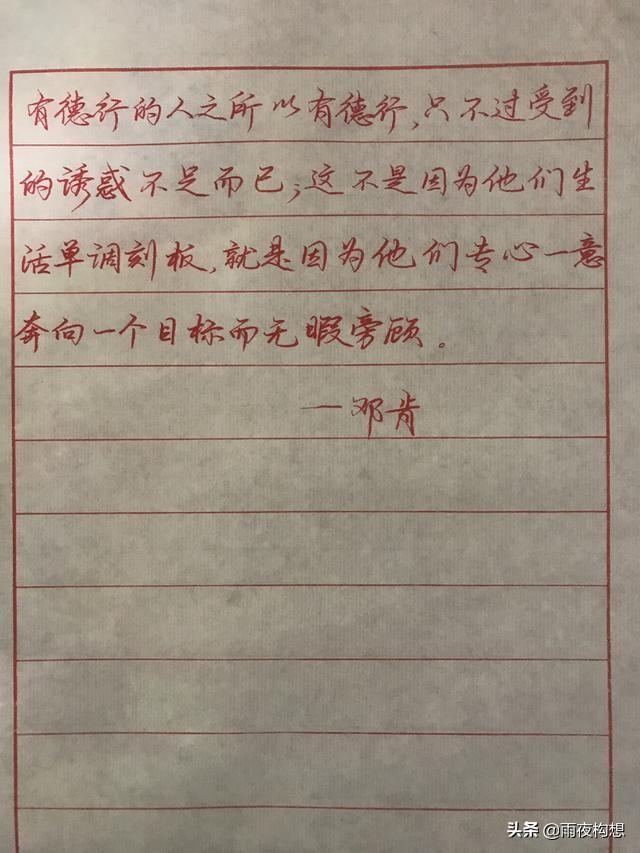 有德行的人之所以有德行,只不过受到
的诱惑不足而已;这不是因为他们生
活单调刻板,就是因为他们专心一意
奔向一个目标而无暇旁顾。
一邓肯
头条 @雨夜构想